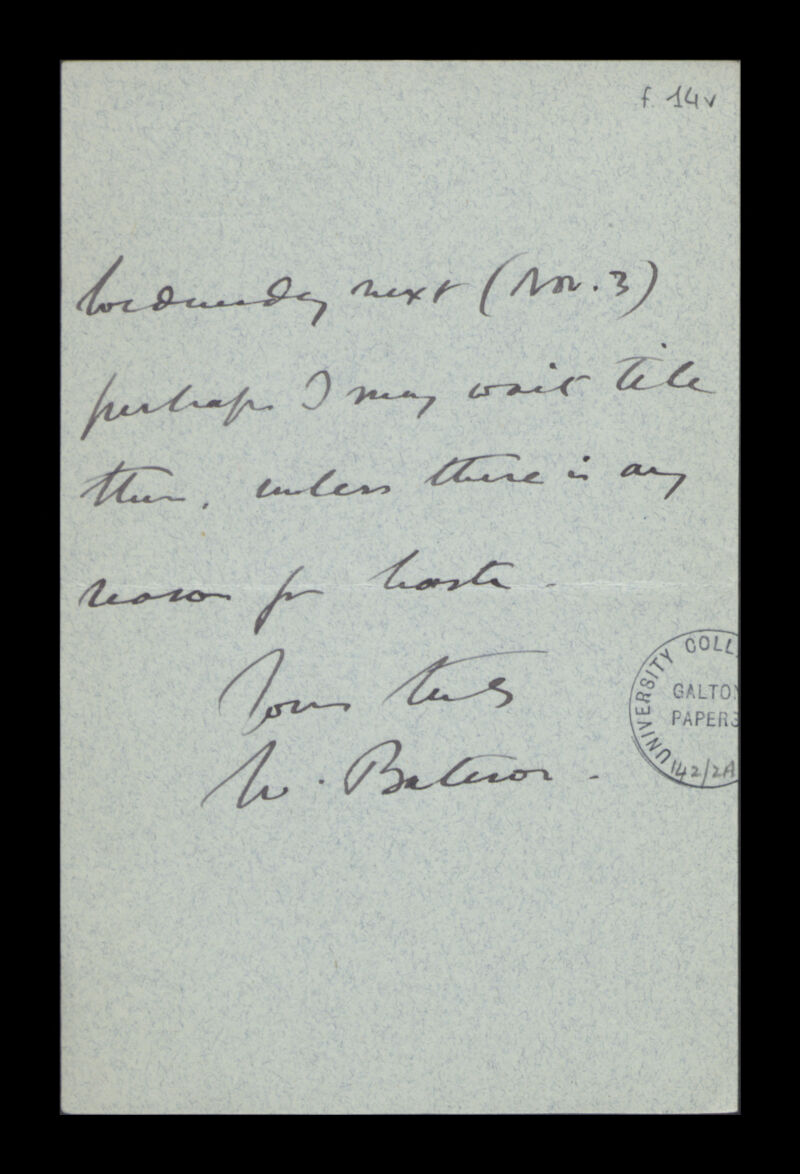 f. 14v
Wednesday next (Nov. 3)
perhaps I may wait till
then, unless there is any
reason for haste.
Yours truly
W. Bateson.
UNIVERSITY COLL
GALTON
PAPERS
142/2A